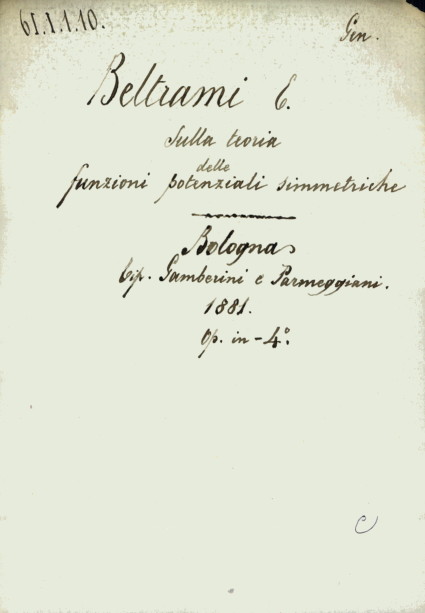 61.I.1.10.
Gen.
Beltrami E.
Sulla teoria
delle
funzioni potenziali simmetriche
Bologna
Tip. Gamberini e Parmeggiani.
1881.
Op. in-4º.
C